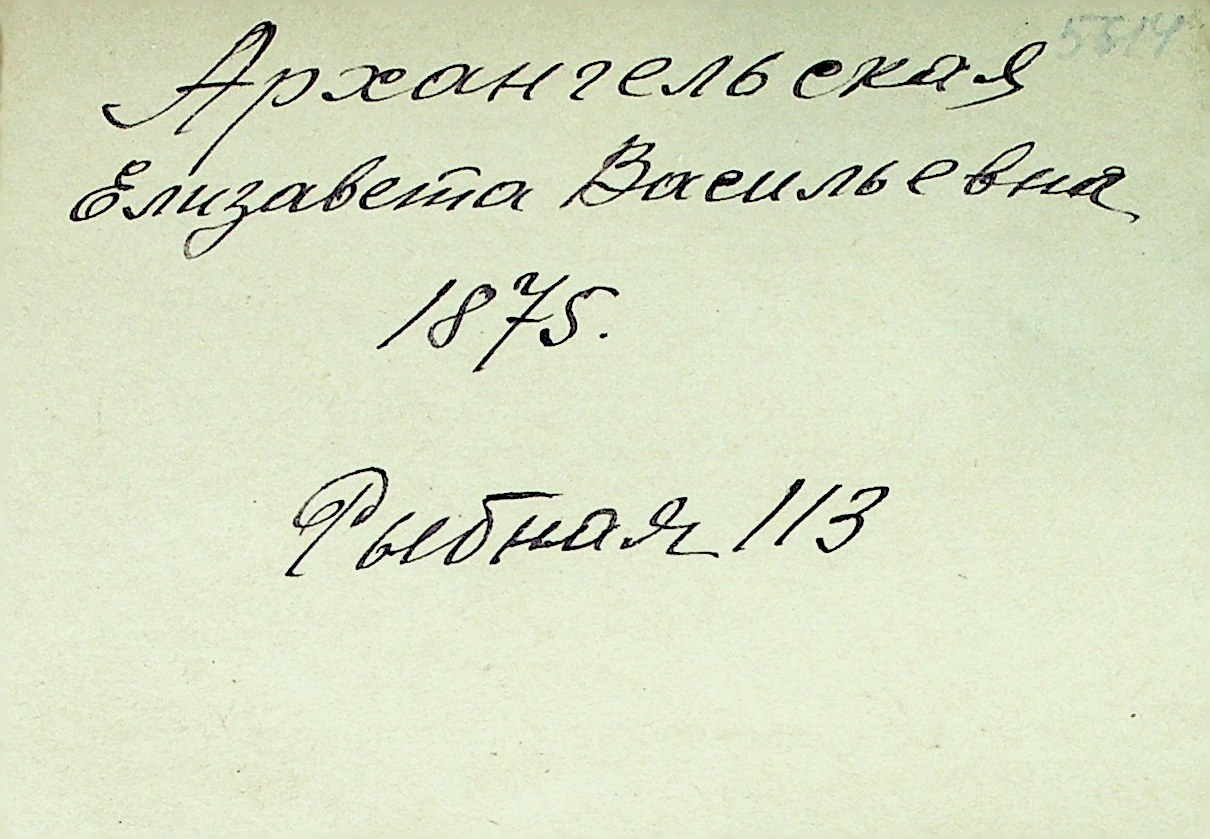 Архангельская
Елизавета Васильевна
1875.
Рыбная 113